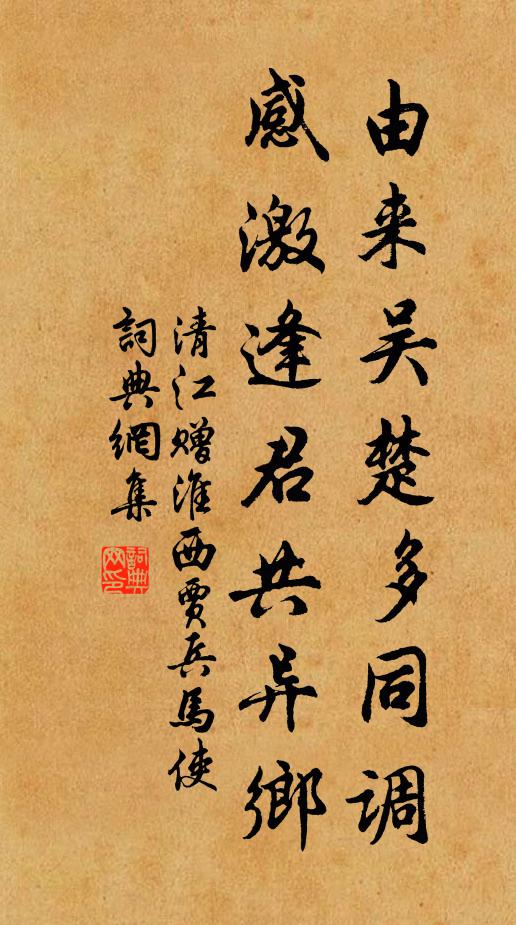 由来吴楚多同调
感激逢君共异鄉
清江赠淮西賈兵馬使
詞典網集
詞典网印